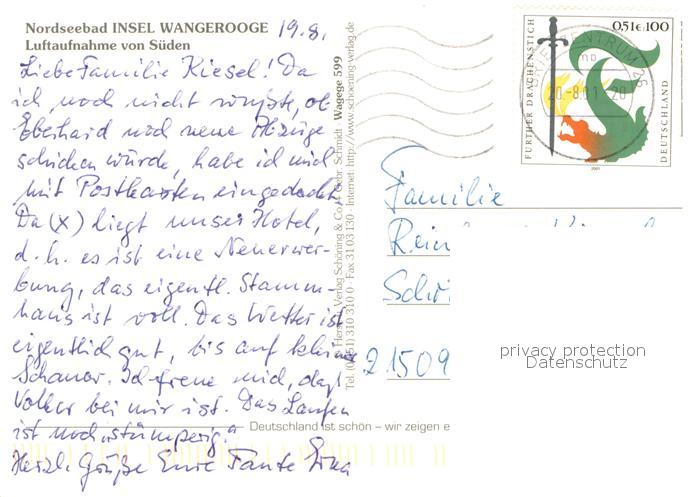 Nordseebad INSEL WANGEROOGE 19.8.
Luftaufnahme von Süden
Liebe Familie Kiesel! Da
ich noch nicht wußte, ob
Eberhard noch neue Abzüge
schicken würde, habe ich mich
mit Postkarten eingedeckt.
Da (X) liegt unser Hotel,
d.h. es ist eine Neuerwer-
bung, das eigentl. Stamm-
haus ist voll. Das Wetter ist
eigentlich gut, bis auf kleine
Schauer. Ich freue mich, daß
Volker bei mir ist. Das Laufen
ist noch „stümperig."
Herzl. Grüße Eure Tante
Deutschland ist schön – wir zeigen e
Schöning & Co + Gebr. Schmidt Wagege 599
Tel. (0451) 310 310 0 · Fax 31 03 130 · Internet: http://www.schoening-verlag.de
FURTHER DRACHENSTICH
0,51€ 100
DEUTSCHLAND
2001
BRIEFZENTRUM 26
20.-8.01-20
Familie
21509
privacy protection
Datenschutz